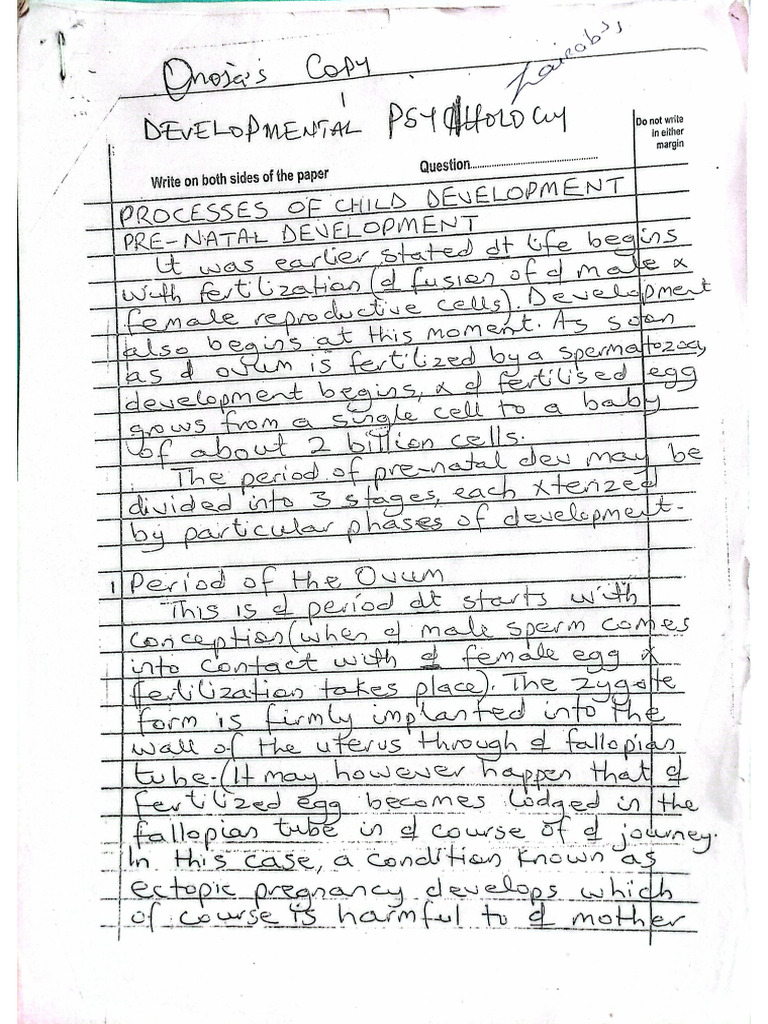 Onoja's Copy
Zainab's
DEVELOPMENTAL PSYCHOLOGY
Do not write
in either
margin
Write on both sides of the paper
Question
PROCESSES OF CHILD DEVELOPMENT
PRE-NATAL DEVELOPMENT
It was earlier stated dt life begins
with fertilization (d fusion of d male &
female reproductive cells). Development
also begins at this moment. As soon
as d ovum is fertilized by a spermatozoa,
development begins, & d fertilised egg
grows from a single cell to a baby
of about 2 billion cells.
The period of pre-natal dev may be
divided into 3 stages, each xterized
by particular phases of development.
1 Period of the Ovum
This is d period dt starts with
conception (when d male sperm comes
into contact with d female egg &
fertilization takes place). The zygote
form is firmly implanted into the
wall of the uterus through d fallopian
tube. (It may however happen that d
fertilized egg becomes lodged in the
fallopian tube in d course of d journey.
In this case, a condition known as
ectopic pregnancy develops which
of course is harmful to d mother